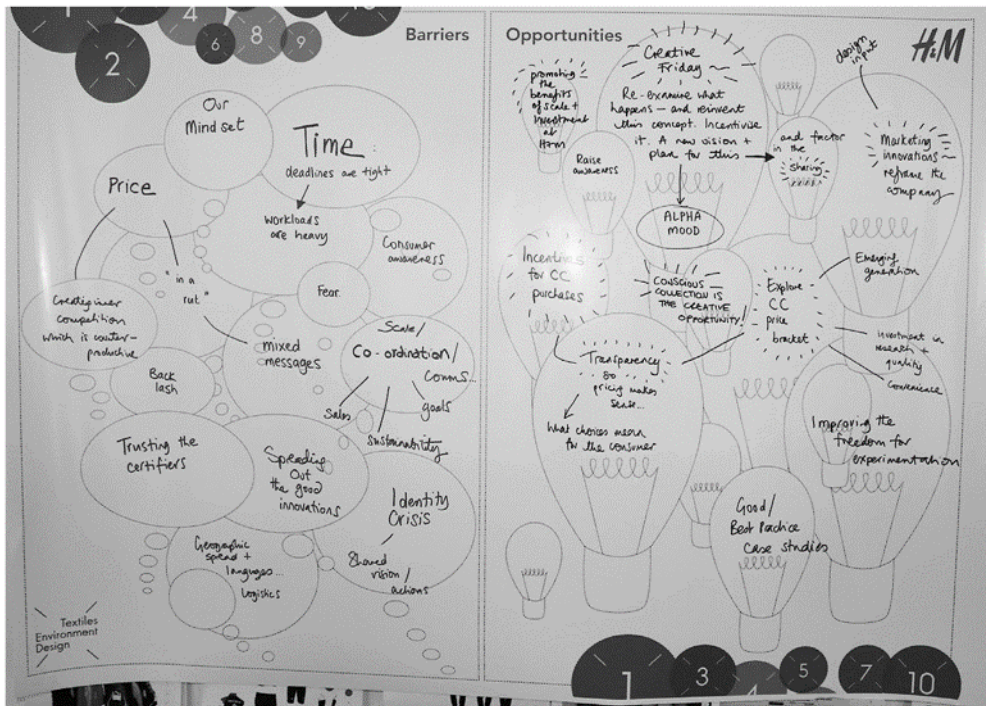 4
10
2
6
8
9
Barriers
Our
Mind set
Time
deadlines are tight
Price
workloads
are heavy
Consumer
awareness
"in a
rut"
Fear
Creating inner
competition
which is counter-
productive
mixed
messages
Scale/
Co-ordination/
Comms...
Sales
goals
Sustainability
Back
lash
Trusting the
certifiers
Spreading
Out
the good
innovations
Identity
Crisis
Shared
vision/
actions
Geographic
spread +
languages...
Logistics
Textiles
Environment
Design
Opportunities
H&M
design
input
promoting
the
benefits
of scale +
Investment
at
H&M
Creative
Friday
Re-examine what
happens — and reinvent
this concept. Incentivise
it. A new vision +
plan for this
and factor
in the
sharing
Marketing
innovations
reframe the
company
Raise
awareness
ALPHA
MOOD
Emerging
generation
Incentives
for CC
purchases
CONSCIOUS
COLLECTION IS
THE CREATIVE
OPPORTUNITY!
Explore
CC
price
bracket
investment in
research +
quality
Convenience
Transparency
so
pricing makes
sense...
What choices mean
for the consumer
Improving the
freedom for
experimentation
Good/
Best Practice
case studies
1
3
4
5
7
10